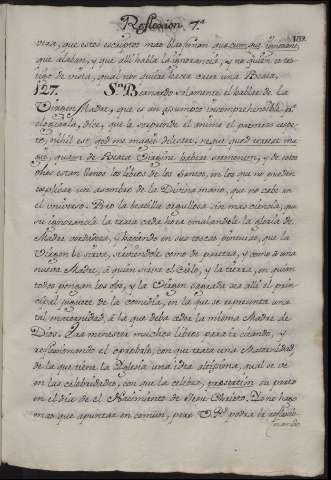 Reflexion 7.ª
vira, que estos escriptos mas blasfeman que
que alaban, y que alli habla la ignorancia, y no quien es tes-
tigo de vista, qual nos quiere hacer creer una Beata.
127. Sn. Bernardo solamente el hablar de la
Virgen Madre, que es un assumpto incomprehensible al
elogiarla, dice, que le sorprende el animo el primer respe-
to, nihil est, qod me magis delectet, neque quod terreat ma-
gis, quam de Beata Virgine habere sermonem, y de estos
phis estan llenos los libros de los Santos, en los que no pueden
explicar sin assombro de la Divina mano, que no cabe en
el universo. Pero la beatilla orgullosa sin mas ciencia, que
su ignorancia la trata cada hora emulandole la gloria de
Madre verdadera, y haciendo en sus toscas pinturas, que la
Virgen le sirve, sirviendole como de partera, y como à una
nueva Madre, à quien mira el Cielo, y la tierra, en quien
todos pongan los ojos, y la Virgen sagrada sea alli el prin-
cipal juguete de la comedia, en la que se representa una
tal maternidad, à la que deba ceder la misma Madre de
Dios. Era menester muchos libros para ir citando, y
reflexionando el oprobrio, con que trata una Maternidad,
de la que tiene la Iglesia una idea altissima, qual se ve
en las celebridades, con que la celebra, su parto
en el dia de el Nacimiento de Jesu Christo. Yo no hago
mas que apuntar en comun, pero V.R. podrà ir reflexio-
nando